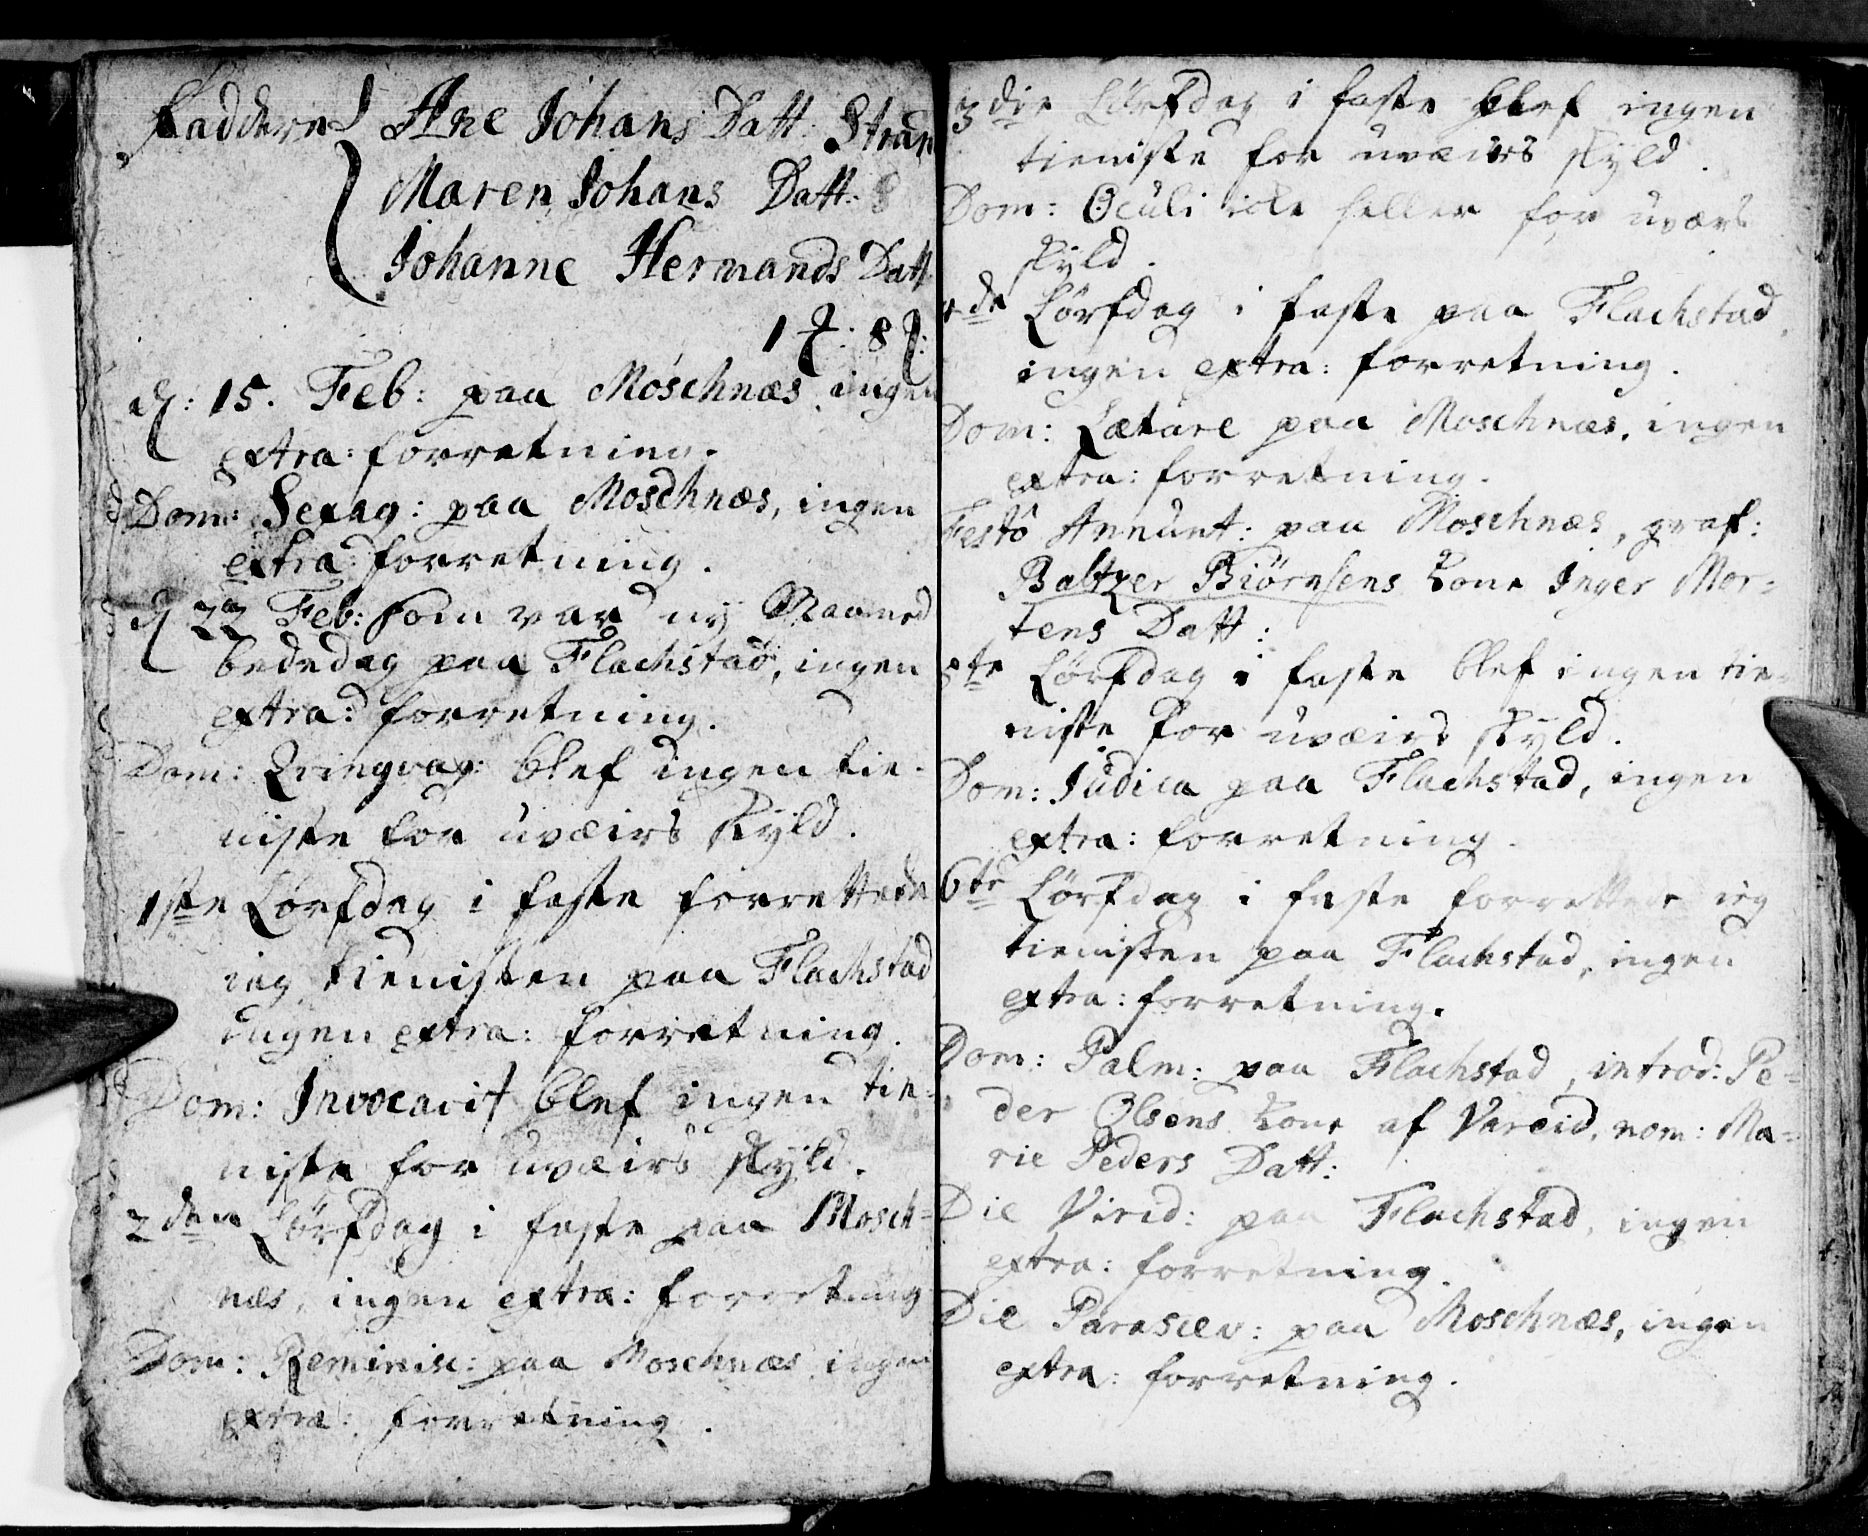 Faddere Ane Johans Datt: Stran
Maren Johans Datt:
Johanne Hermands Datt
d: 15. Feb: paa Moschnæs, ingen
extra: forretning.
Dom: Sexag: paa Moschnæs, ingen
extra: forretning.
d 22 Feb: som var ny Maaned
bededag paa Flachstad, ingen
extra: forretning.
Dom: Qvinqvag: blef ingen tie-
niste for uveirs skyld.
1ste Lørsdag i faste forrettede
ieg tienisten paa Flachstad
ingen extra: forretning.
Dom: Invocavit blef ingen tie-
niste for uveirs skyld.
2den Lørsdag i faste paa Mosch=
næs, ingen extra: forretning
Dom: Reminisc: paa Moschnæs ingen
extra: forretning.
3die Lørsdag i faste blef ingen
tieniste for uveirs skyld.
Dom: Oculi icke heller for uværs
skyld.
4de Lørsdag i faste paa Flachstad,
ingen extra: forretning.
Dom: Lætare paa Moschnæs, ingen
extra: forretning.
Festô Annunt: paa Moschnæs, graf:
Baltzer Biørnsens Kone Inger Mor=
tens Datt:
5te Lørsdag i faste blef ingen tie=
niste for uveirs skyld.
Dom: Judica paa Flachstad, ingen
extra: forretning.
6te Lørsdag i faste forrettede ieg
tienisten paa Flachstad, ingen
extra: forretning.
Dom: Palm: paa Flachstad, introd: Pe=
der Olsens Kone af Vareid, nom: Ma=
rie Peders Datt:
Die Virid: paa Flachstad, ingen
extra: forretning.
Die Parascev: paa Moschnæs, ingen
extra: forretning.